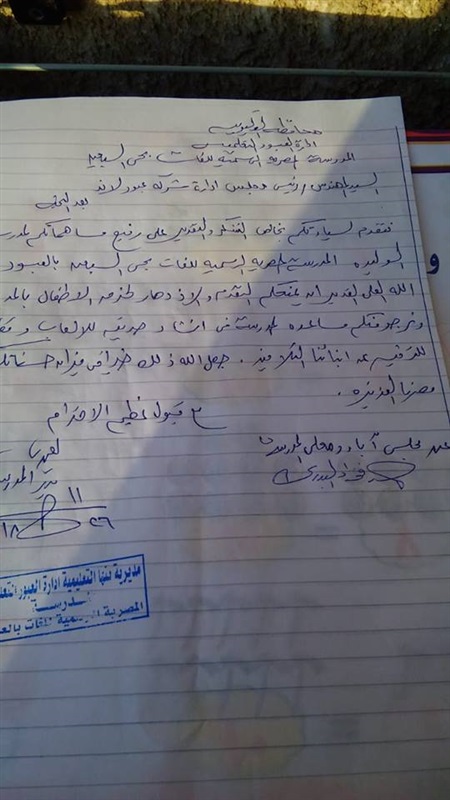 محافظة القليوبية
ادارة العبور التعليمية
المدرسة المصرية الرسمية للغات بحى السبعين
السيد المهندس / رئيس مجلس ادارة شركة عبور لاند
بعد التحية
نتقدم لسيادتكم بخالص الشكر والتقدير على رفيع مساهماتكم لمدرس
الوليدة المدرسة المصرية الرسمية للغات بحى السبعين بالعبور
الله العلى القدير ان يمنحكم التقدم والازدهار لخدمة الاطفال بالمد
ونرجو منكم مساعدة المدرسة فى انشاء حديقة للالعاب و
للترفيه عن ابنائنا التلاميذ . جعل الله ذلك خيرا فى ميزان حسناتك
مصرنا العزيزة .
مع قبول عظيم الاحترام
عن مجلس آباء ومعلمى المدرسة
مدير المدرس
١١
٢٦
١٨
مديرية بنها التعليمية ادارة العبور التعل
مدرسة
المصرية الرسمية للغات بالع